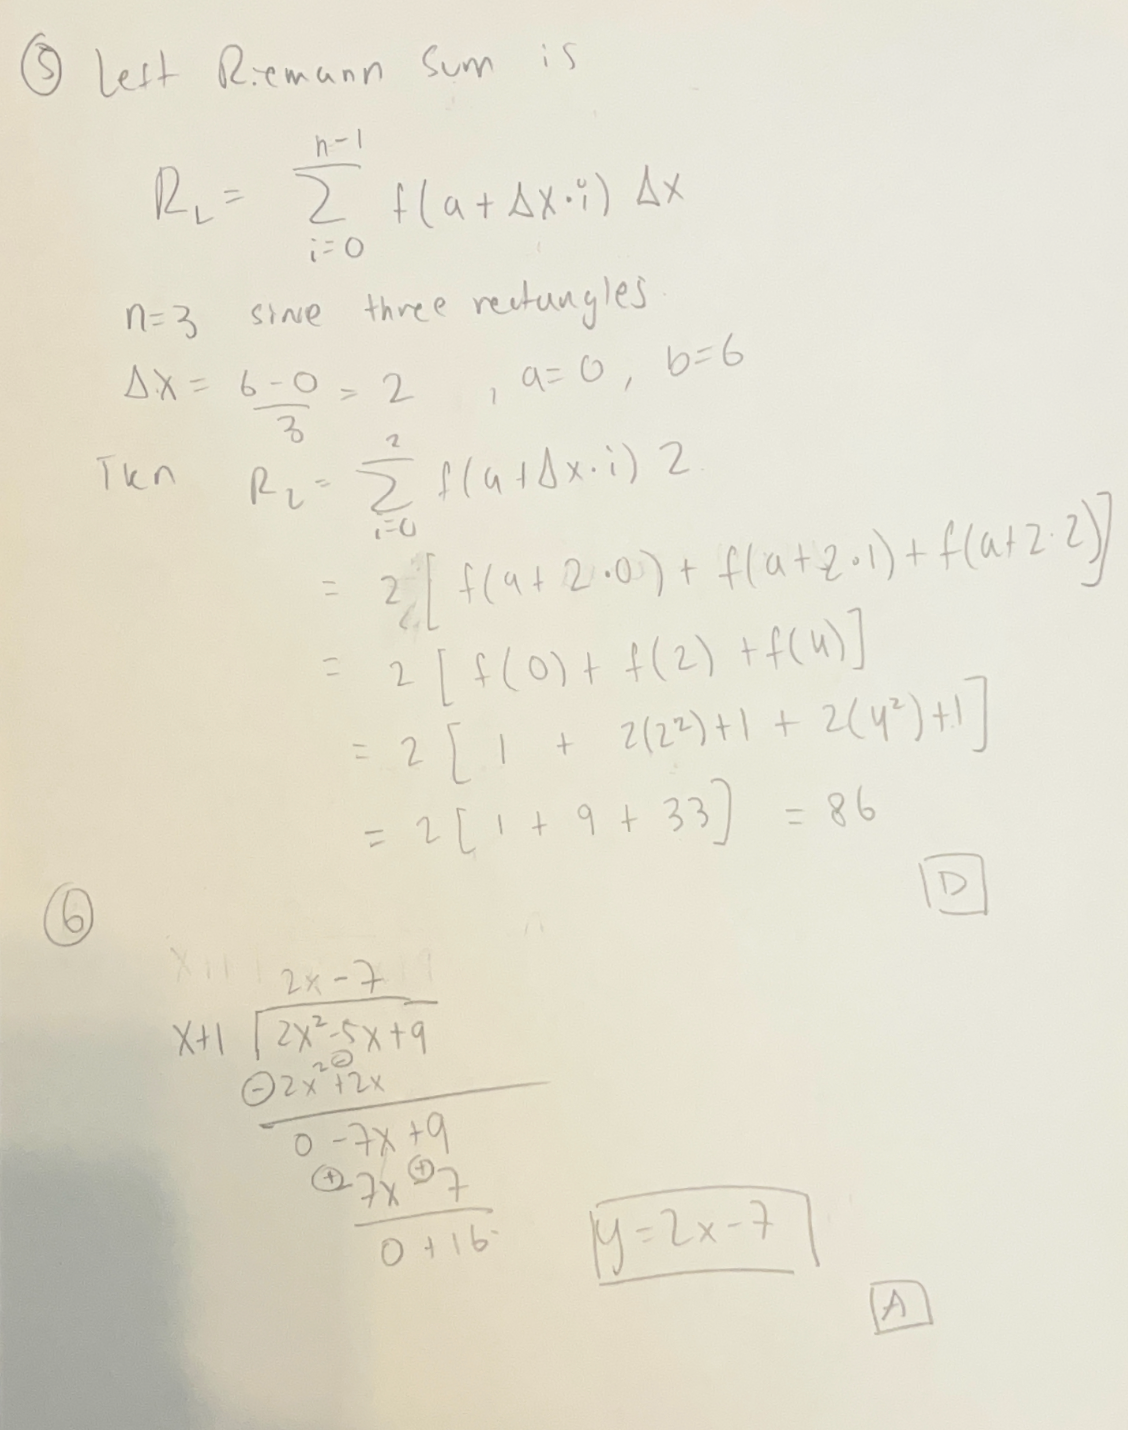 ⑤ Left Riemann Sum is
R_L = \sum_{i=0}^{n-1} f(a+Δx·i) Δx
n=3 since three rectangles.
Δx = \frac{6-0}{3} = 2 , a=0, b=6
Then R_L = \sum_{i=0}^{2} f(a+Δx·i) 2.
= 2[f(a+2·0) + f(a+2·1) + f(a+2·2)]
= 2[f(0) + f(2) + f(4)]
= 2[1 + 2(2²)+1 + 2(4²)+1]
= 2[1 + 9 + 33] = 86
D
⑥
2x-7
x+1 2x²-5x+9
⊖2x² ⊖+2x
0 -7x+9
⊕-7x ⊕-7
0 + 16
y=2x-7
A